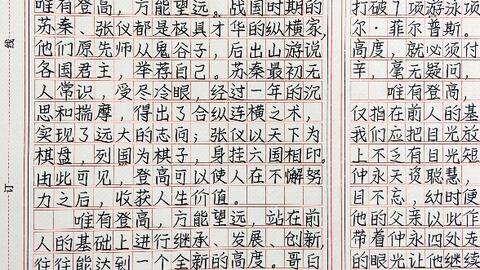 唯有登高,方能望远。战国时期的
苏秦、张仪都是极具才华的纵横家,
他们原先师从鬼谷子,后出山游说
各国君主,举荐自己。苏秦最初无
人常识,受尽冷眼,经过一年的沉
思和揣摩,得出了合纵连横之术,
实现了远大的志向;张仪以天下为
棋盘,列国为棋子,身挂六国相印。
由此可见,登高可以使人在不懈努
力之后,收获人生价值。
唯有登高,方能望远,站在前
人的基础上进行继承、发展、创新,
往往能达到一个全新的高度。哥白
打破7项游泳项
尔·菲尔普斯。
高度,就必须付
辛,毫无疑问,
唯有登高,
仅指在前人的基
我们应把目光放
上不乏有目光短
仲永天资聪慧,
目不忘,幼时便
他的父亲以此作
带着仲永四处走
的眼光让他继续
线
订